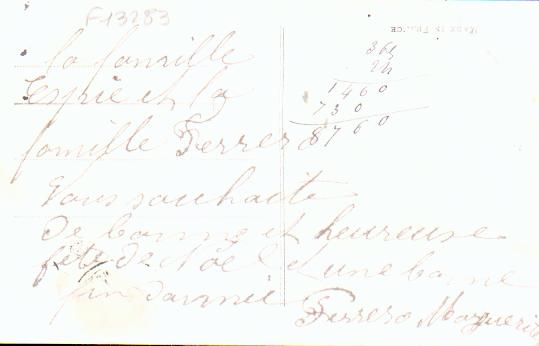 F13283
MADE IN FRANCE
la famille
Esprie et la
famille Ferrero
Vous souhaite
de bonne et heureuse
fête de Noël et une bonne
fin d'année
Ferrero Marguerite
365
24
1460
730
8760